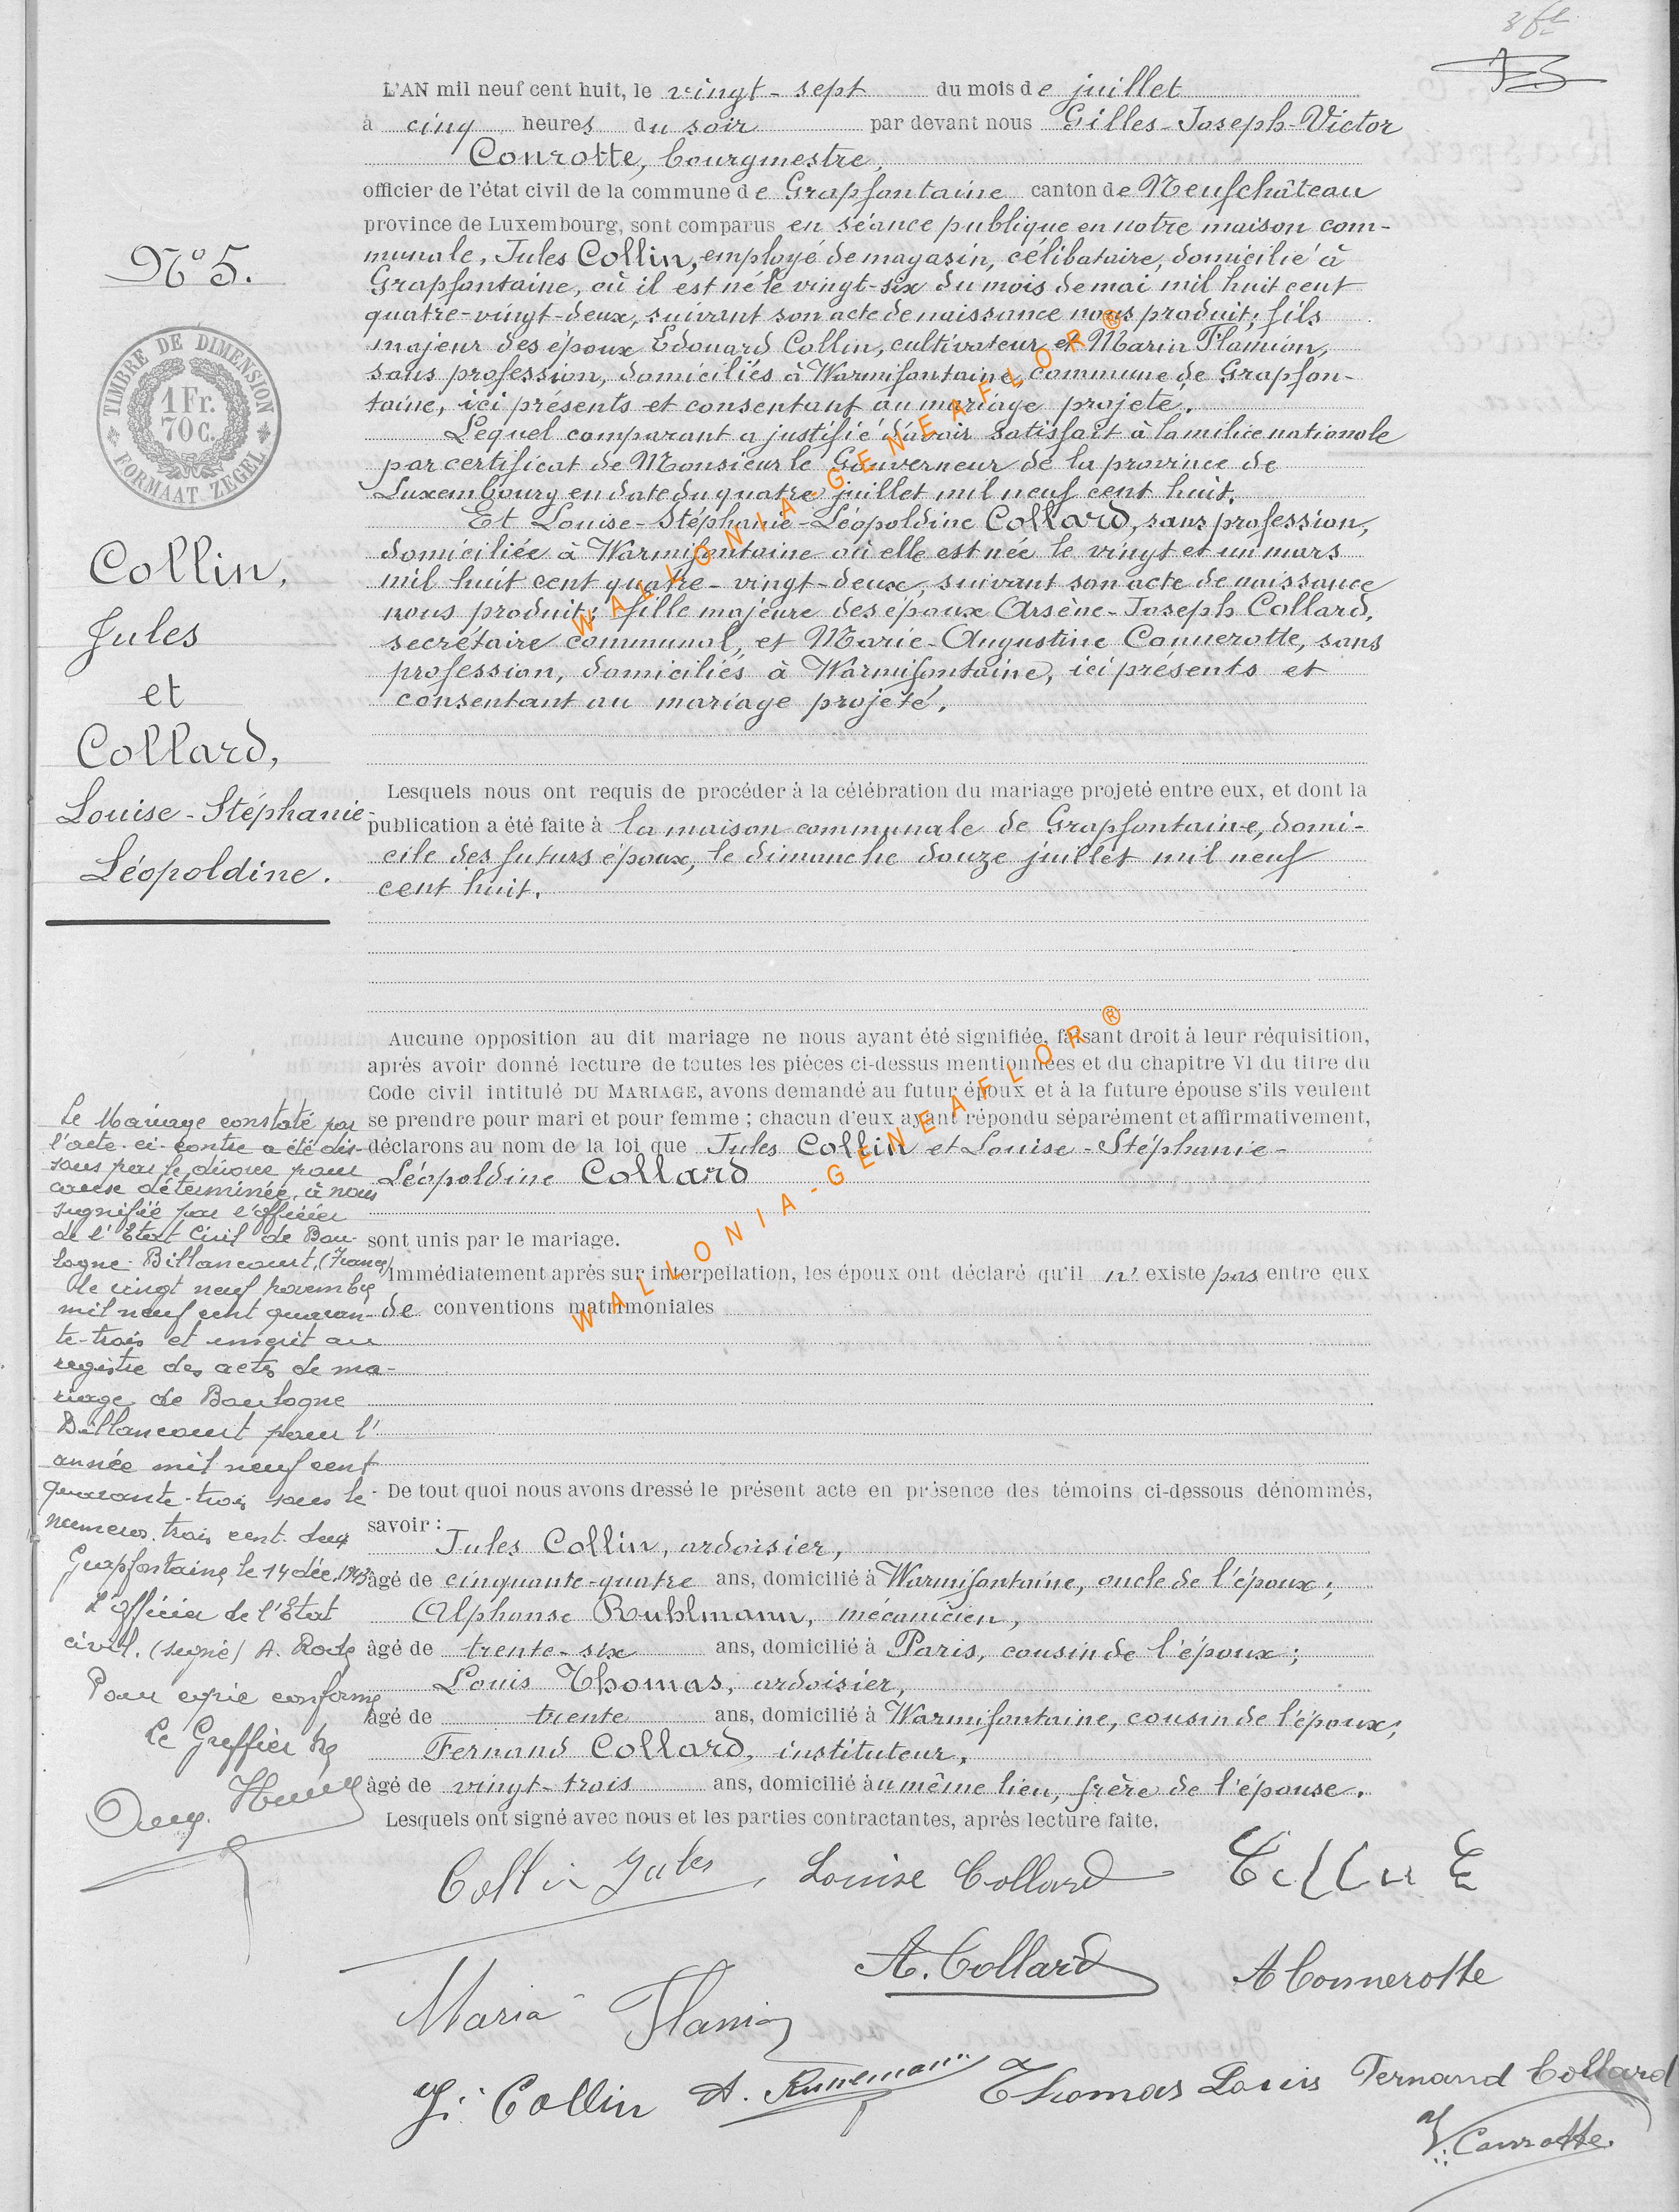 L'AN mil neuf cent huit, le vingt-sept du mois de juillet
à cinq heures du soir par devant nous Gilles-Joseph-Victor
Conrotte, bourgmestre,
officier de l'état civil de la commune de Grapfontaine canton de Neufchâteau
province de Luxembourg, sont comparus en séance publique en notre maison com-
munale, Jules Collin, employé de magasin, célibataire, domicilié à
Grapfontaine, où il est né le vingt-six du mois de mai mil huit cent
quatre-vingt-deux, suivant son acte de naissance nous produit; fils
majeur des époux Edouard Collin, cultivateur et Maria Flamion,
sans profession, domiciliés à Warmifontaine, commune de Grapfon-
taine, ici présents et consentant au mariage projeté.
Lequel comparant a justifié d'avoir satisfait à la milice nationale
par certificat de Monsieur le Gouverneur de la province de
Luxembourg en date du quatre juillet mil neuf cent huit.
Et Louise-Stéphanie-Léopoldine Collard, sans profession,
domiciliée à Warmifontaine où elle est née le vingt et un mars
mil huit cent quatre-vingt-deux, suivant son acte de naissance
nous produit; fille majeure des époux Arsène-Joseph Collard,
secrétaire communal, et Marie-Augustine Connerotte, sans
profession, domiciliés à Warmifontaine, ici présents et
consentant au mariage projeté.
Lesquels nous ont requis de procéder à la célébration du mariage projeté entre eux, et dont la
publication a été faite à la maison communale de Grapfontaine, domi-
cile des futurs époux, le dimanche douze juillet mil neuf
cent huit.
Aucune opposition au dit mariage ne nous ayant été signifiée, faisant droit à leur réquisition,
après avoir donné lecture de toutes les pièces ci-dessus mentionnées et du chapitre VI du titre du
Code civil intitulé DU MARIAGE, avons demandé au futur époux et à la future épouse s'ils veulent
se prendre pour mari et pour femme ; chacun d'eux ayant répondu séparément et affirmativement,
déclarons au nom de la loi que Jules Collin et Louise-Stéphanie-
Léopoldine Collard
sont unis par le mariage.
Immédiatement après sur interpellation, les époux ont déclaré qu'il n'existe pas entre eux
de conventions matrimoniales
De tout quoi nous avons dressé le présent acte en présence des témoins ci-dessous dénommés,
savoir :
Jules Collin, ardoisier,
âgé de cinquante-quatre ans, domicilié à Warmifontaine, oncle de l'époux;
Alphonse Ruhlmann, mécanicien,
âgé de trente-six ans, domicilié à Paris, cousin de l'époux;
Louis Thomas, ardoisier,
âgé de trente ans, domicilié à Warmifontaine, cousin de l'époux;
Fernand Collard, instituteur,
âgé de vingt-trois ans, domicilié au même lieu, frère de l'épouse.
Lesquels ont signé avec nous et les parties contractantes, après lecture faite.
Collin Jules Louise Collard Collin E
A. Collard A Connerotte
Maria Flamion
J. Collin A. Thomas Louis Fernand Collard
V. Conrotte.
N° 5.
TIMBRE DE DIMENSION
1 Fr.
70 c.
FORMAAT ZEGEL
Collin,
Jules
et
Collard,
Louise-Stéphanie-
Léopoldine.
Le Mariage constaté par
l'acte ci-contre a été dis-
sous par le divorce pour
cause déterminée, à nous
signifié par l'officier
de l'Etat Civil de Bou-
logne-Billancourt, (France)
le vingt neuf novembre
mil neuf cent quaran-
te-trois et inscrit au
registre des actes de ma-
riage de Boulogne
Billancourt pour l'
année mil neuf cent
quarante-trois sous le
numéro trois cent deux
Grapfontaine, le 14 déc. 1943
L'officier de l'Etat
civil. (signé) A. Rock
Pour copie conforme
Le Greffier
WALLONIA-GENEAFLOR ®
WALLONIA-GENEAFLOR ®